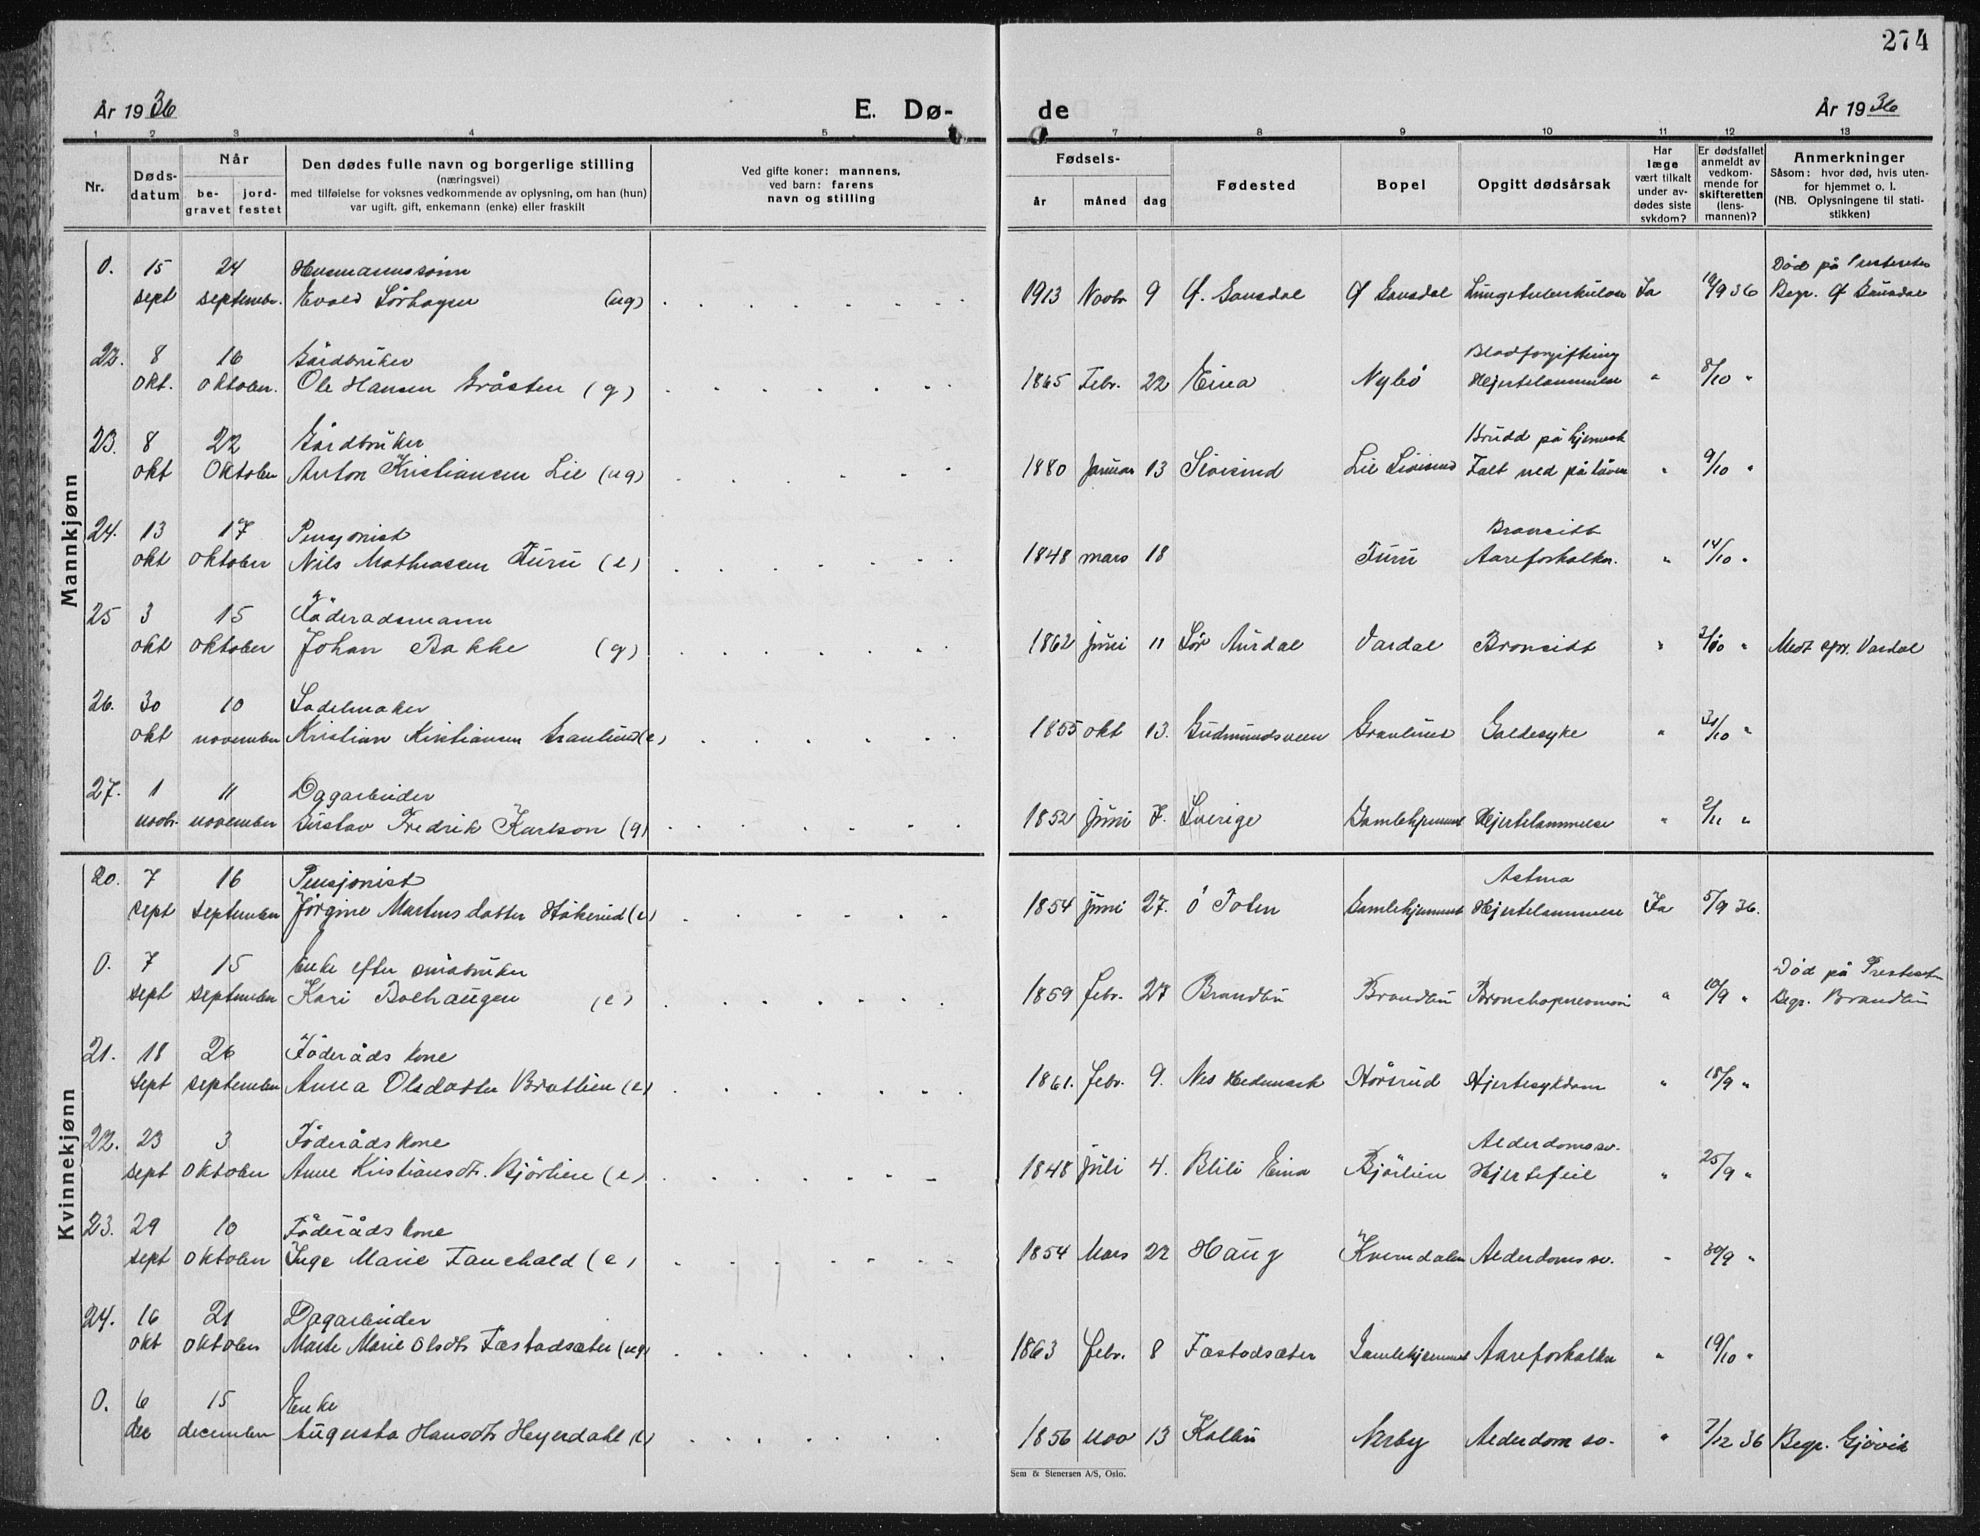 274
År 1936
E. Dø-
de
År 1936
1 2 3 4 5
7 8 9 10 11 12 13
Nr.
Døds-
datum
Når
be-
gravet
jord-
festet
Den dødes fulle navn og borgerlige stilling
(næringsvei)
med tilføielse for voksnes vedkommende av oplysning, om han (hun)
var ugift, gift, enkemann (enke) eller fraskilt
Ved gifte koner: mannens,
ved barn: farens
navn og stilling
Fødsels-
år måned dag
Fødested
Bopel
Opgitt dødsårsak
Har
læge
vært tilkalt
under av-
dødes siste
sykdom?
Er dødsfallet
anmeldt av
vedkom-
mende for
skifteretten
(lens-
mannen)?
Anmerkninger
Såsom: hvor død, hvis uten-
for hjemmet o. l.
(NB. Oplysningene til stati-
stikken)
Mannkjønn
0. 15 24 Husmannssønn Død på
sept septembr. Evald Sørhagen (ug) 1913 Novbr 9 Ø. Gausdal Ø Gausdal Lungetuberkulose Ja 19/9 36 Begr. Ø Gausdal
22. 8 16 Gårdbruker Blodforgiftning
okt. oktober. Ole Hansen Gråsten (g) 1865 Febr. 22 Eina Nybö Hjertelammelse " 8/10 "
23. 8 22 Gårdbruker Brudd på
okt Oktober Anton Kristiansen Lie (ug) 1880 Januar 13 Sivisind Lie Sivisind Falt ned på låven " 9/10 "
24. 13 17 Pensjonist Bronsitt
okt oktober Nils Mathiassen Furu (e) 1848 mars 18 Furu Aareforkalkn. " 14/10 "
25 3 15 Föderadsmann
okt oktober Johan Bakke (g) 1862 juni 11 Sör Aurdal Vardal Bronsitt " /10 " Vardal
26. 30 10 Sadelmaker
okt november Kristian Kristiansen Granlund (e) 1855 okt 13. Gudmundsveen Granlund Galdesyke " 31/10 "
27. 1 11 Dagarbeider
novbr. november Gustav Fredrik Karlson (g) 1852 Juni 7. Sverige Gamlehjemmet Hjertelammelse " 2/11 "
Kvinnekjønn
20. 7 16 Pensjonist Astma
sept september Jörgine Martinsdatter Håkerud (e) 1854 juni 27. Ö Toten Gamlehjemmet Hjertelammelse Ja 5/9 36.
0. 7 15 Enke efter småbruker Död på
sept september Kari Bolhaugen (e) 1859 febr. 27 Brandbu Brandbu Bronchopneumoni " 10/9 " Begr. Brandbu
21. 18 26 Föderåds kone
sept september Anna Olsdatter Bratlien (e) 1861. febr. 9. Nes Hedmark Hörsrud Hjertesykdom " 18/9 "
22. 23 3 Föderåds kone Alderdomssv.
sept oktober Anne Kristiansdt. Björlien (e) 1848 juli 4. Blili Eina Björlien Hjertefeil " 25/9 "
23. 29 10 Föderåds kone
sept oktober Inge Marie Fauchald (e) 1854 Mars 22 Haug Kverndalen Alderdoms sv. " 30/9 "
24. 16 21 Dagarbeider
okt oktober Marte Marie Olsdt. Fæstadsæter (ug) 1863 febr. 8 Fæstadsæter Gamlehjemmet Aareforkalkn " 19/10 "
0. 6 15 Enke
dec december Augusta Hansdt. Heyerdahl (e) 1856 nov 13 Kolbu Nerby Alderdom sv. " 7/12 36 Begr. Gjövik
Sem & Stenersen A/S, Oslo.